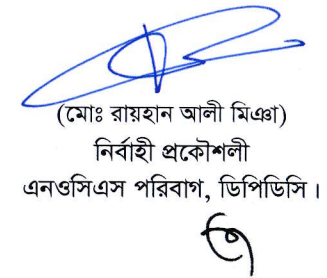 (মোঃ রায়হান আলী মিঞা)
নির্বাহী প্রকৌশলী
এনওসিএস পরিবাগ, ডিপিডিসি।